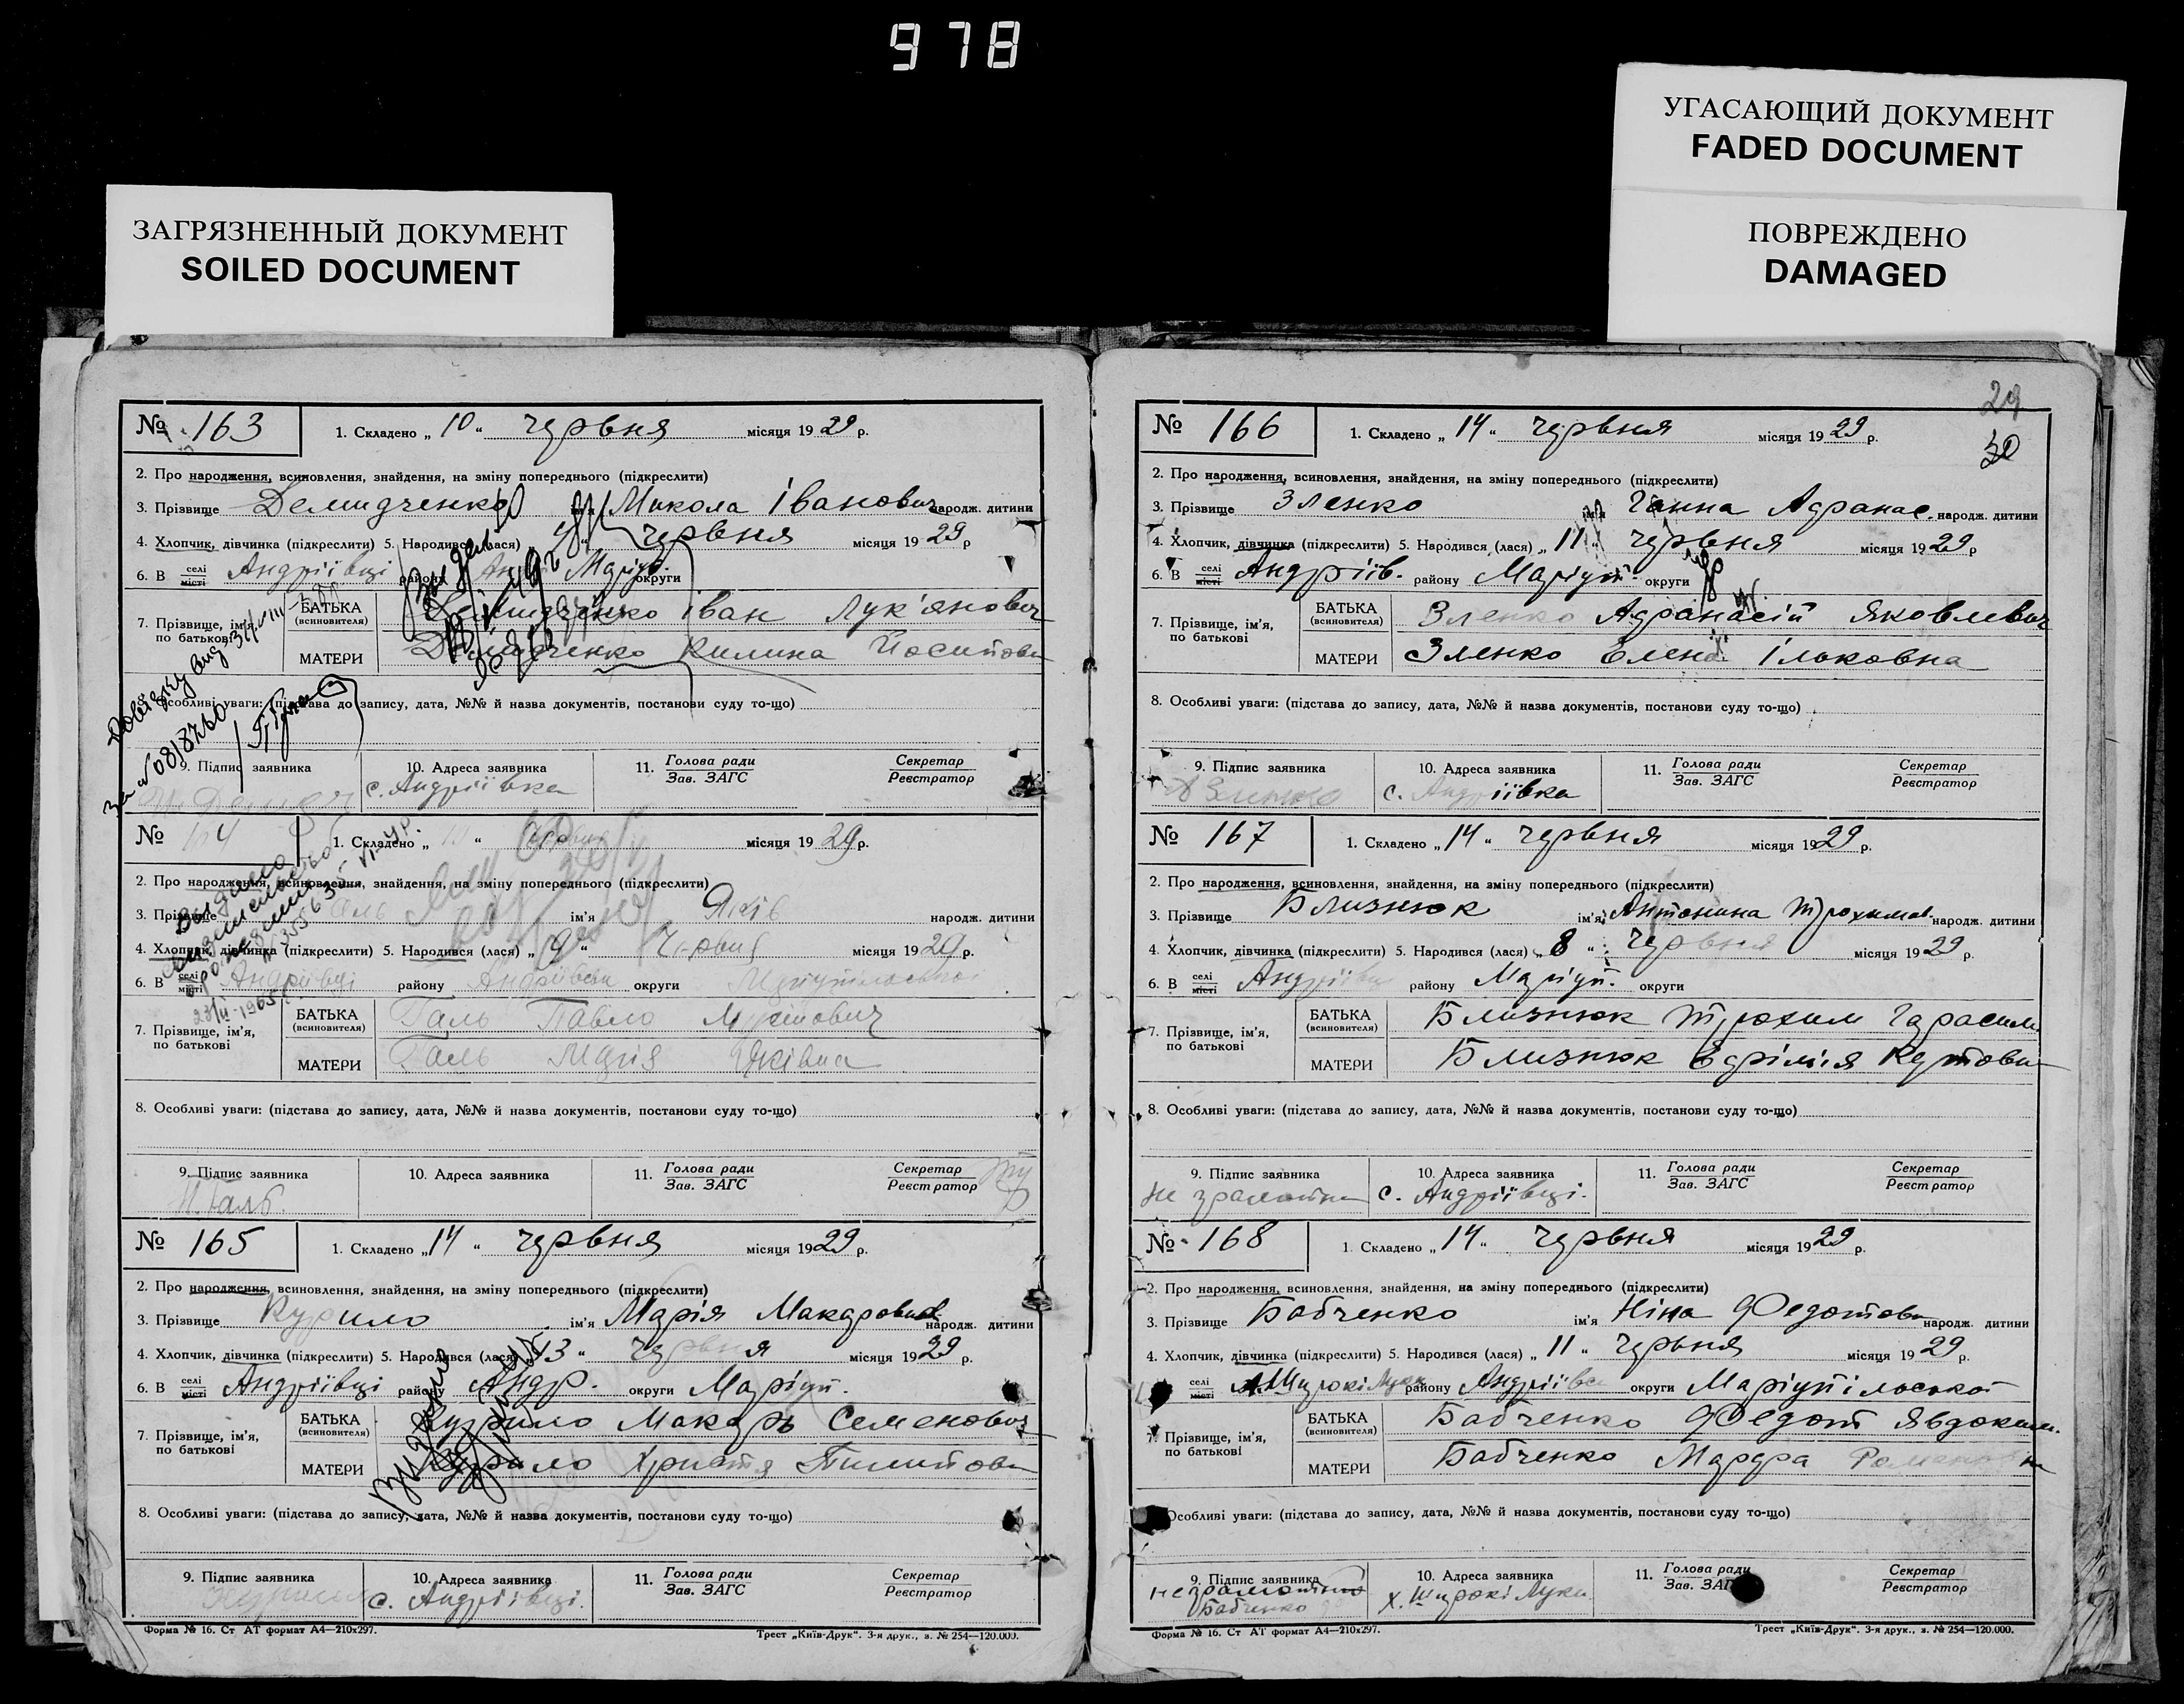 978
УГАСАЮЩИЙ ДОКУМЕНТ
FADED DOCUMENT
ПОВРЕЖДЕНО
DAMAGED
ЗАГРЯЗНЕННЫЙ ДОКУМЕНТ
SOILED DOCUMENT
№ 163 1. Складено „ 10 “ червня місяця 1929 р.
2. Про народження, всиновлення, знайдення, на зміну попереднього (підкреслити)
3. Прізвище Демидченко ім'я Микола Іванович народж. дитини
4. Хлопчик, дівчинка (підкреслити) 5. Народився (лася) „ “ червня місяця 1929 р
6. В селі місті Андріївці району Маріуп. округи
7. Прізвище, ім'я, по батькові БАТЬКА (всиновителя) Демидченко Іван Лук'янович
МАТЕРИ Демидченко Килина Йосипівн
Довідку вид. 31/VIII
За № 0818760
8. Особливі уваги: (підстава до запису, дата, №№ й назва документів, постанови суду то-що)
9. Підпис заявника 10. Адреса заявника 11. Голова ради Зав. ЗАГС Секретар Реєстратор
с. Андріївка
№ 164 1. Складено „ “ місяця 1929 р.
2. Про народження, всиновлення, знайдення, на зміну попереднього (підкреслити)
3. Прізвище Галь ім'я Яків народж. дитини
4. Хлопчик, дівчинка (підкреслити) 5. Народився (лася) „ 9 “ червня місяця 1929 р.
6. В селі місті Андріївці району Андріївськ округи Маріупільської
7. Прізвище, ім'я, по батькові БАТЬКА (всиновителя) Галь Павло
МАТЕРИ Галь Марія Яківна
8. Особливі уваги: (підстава до запису, дата, №№ й назва документів, постанови суду то-що)
9. Підпис заявника 10. Адреса заявника 11. Голова ради Зав. ЗАГС Секретар Реєстратор
Галь.
№ 165 1. Складено „ 14 “ червня місяця 1929 р.
2. Про народження, всиновлення, знайдення, на зміну попереднього (підкреслити)
3. Прізвище Курило ім'я Марія Макаровна народж. дитини
4. Хлопчик, дівчинка (підкреслити) 5. Народився (лася) „ 13 “ червня місяця 1929 р.
6. В селі місті Андріївці району Андр. округи Маріуп.
7. Прізвище, ім'я, по батькові БАТЬКА (всиновителя) Курило Макарь Семенович
МАТЕРИ Курило Христя Пилиповн
8. Особливі уваги: (підстава до запису, дата, №№ й назва документів, постанови суду то-що)
9. Підпис заявника 10. Адреса заявника 11. Голова ради Зав. ЗАГС Секретар Реєстратор
с. Андріївці.
Форма № 16. Ст АТ формат А4—210х297. Трест „Київ-Друк“. 3-я друк., з. № 254—120.000.
29
30
№ 166 1. Складено „ 14 “ червня місяця 1929 р.
2. Про народження, всиновлення, знайдення, на зміну попереднього (підкреслити)
3. Прізвище Зленко ім'я Ганна Афанас. народж. дитини
4. Хлопчик, дівчинка (підкреслити) 5. Народився (лася) „ 11 “ червня місяця 1929 р
6. В селі місті Андріїв. району Маріуп. округи
7. Прізвище, ім'я, по батькові БАТЬКА (всиновителя) Зленко Афанасій Яковлевич
МАТЕРИ Зленко Елена Ільковна
8. Особливі уваги: (підстава до запису, дата, №№ й назва документів, постанови суду то-що)
9. Підпис заявника 10. Адреса заявника 11. Голова ради Зав. ЗАГС Секретар Реєстратор
с. Андріївка
№ 167 1. Складено „ 14 “ червня місяця 1929 р.
2. Про народження, всиновлення, знайдення, на зміну попереднього (підкреслити)
3. Прізвище Близнюк ім'я Антонина Трохимов. народж. дитини
4. Хлопчик, дівчинка (підкреслити) 5. Народився (лася) „ 8 “ червня місяця 1929 р.
6. В селі місті Андріївці району Маріуп. округи
7. Прізвище, ім'я, по батькові БАТЬКА (всиновителя) Близнюк Трохим Гарасим
МАТЕРИ Близнюк Єфілія
8. Особливі уваги: (підстава до запису, дата, №№ й назва документів, постанови суду то-що)
9. Підпис заявника 10. Адреса заявника 11. Голова ради Зав. ЗАГС Секретар Реєстратор
не грамотна с. Андріївці.
№ 168 1. Складено „ 14 “ червня місяця 1929 р.
2. Про народження, всиновлення, знайдення, на зміну попереднього (підкреслити)
3. Прізвище Бабченко ім'я Ніна Федотовн народж. дитини
4. Хлопчик, дівчинка (підкреслити) 5. Народився (лася) „ 11 “ червня місяця 1929 р.
селі місті Широкі Луки району Андріївс округи Маріупільської
7. Прізвище, ім'я, по батькові БАТЬКА (всиновителя) Бабченко Федот Явдоким.
МАТЕРИ Бабченко Марфа Романовна
Особливі уваги: (підстава до запису, дата, №№ й назва документів, постанови суду то-що)
9. Підпис заявника 10. Адреса заявника 11. Голова ради Зав. ЗАГС Секретар Реєстратор
неграмотний
Бабченко х. Широкі Луки
Форма № 16. Ст АТ формат А4—210х297. Трест „Київ-Друк“. 3-я друк., з. № 254—120.000.